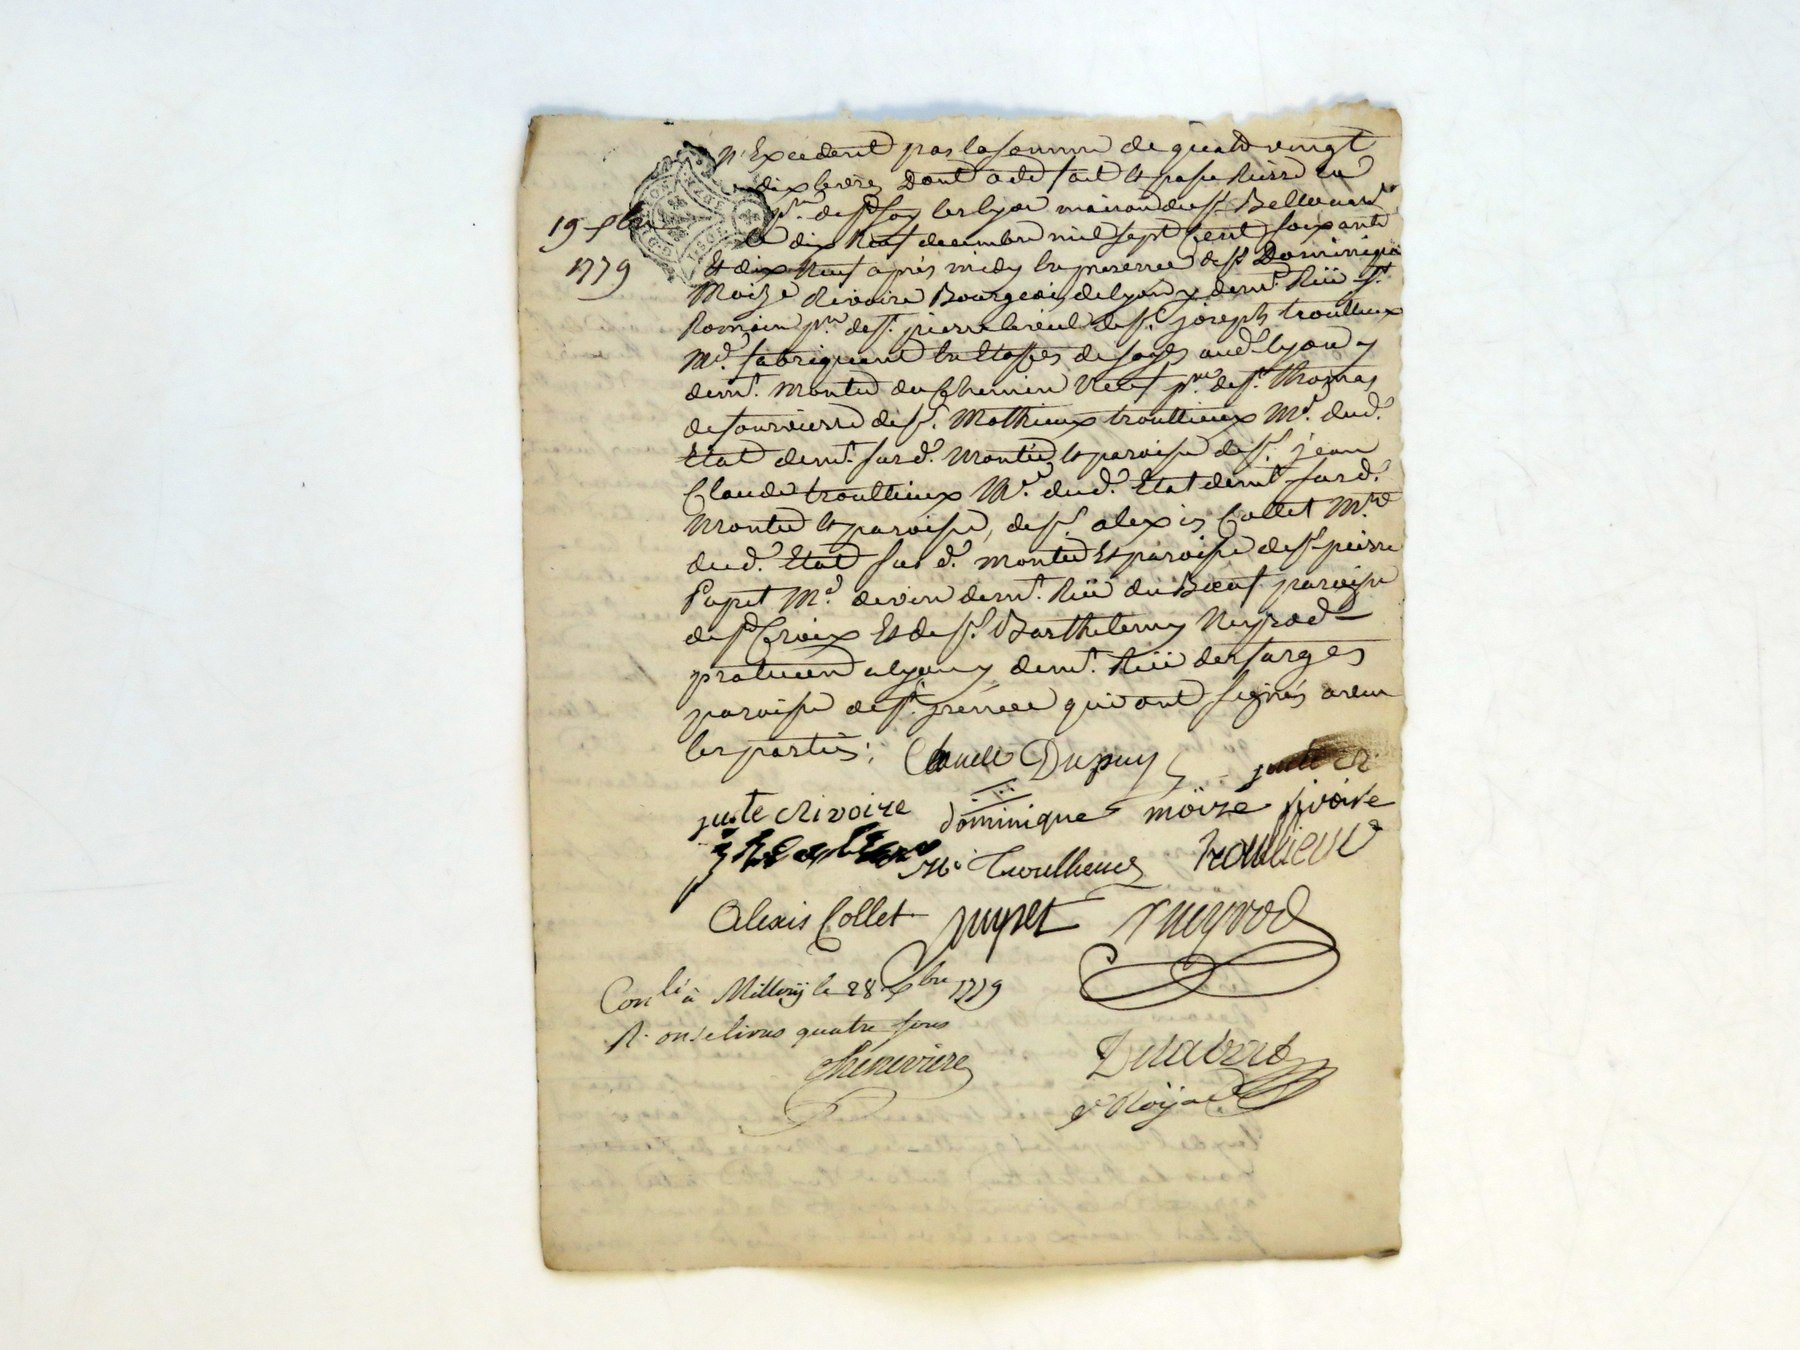 n'Excedent pas la somme de quatre vingt
dix livres Dont acte fait et passé lu
psse. de ste foy les lyon maison du sr Belle
19 xbre
Le dix Neuf decembre mil sept Cent soixante
1779
Et dix Neuf apres midy En presence de sr Dominique
Moize Rivoire Bourgeois de lyon y demt. Rüe st.
Romain psse. de st. pierre levieux de sr. joseph troullieux
Md. fabriquant En Etoffes de soyes aud. lyon y
demt. montée du Chemin Neuf psse. de st. thomas
de fourvierre de sr. Mathieux troullieux Md. dud.
Etat demt. sur d. Montée et paroisse de sr. jean
Claude troullieux Md. dud. Etat demt. sur d.
montée et paroisse, de sr. alexis Collet Md
dud. Etat sur d. montée Et paroisse de sr pierre
Pupet Md. de vin demt. Rüe du Bœuf paroisse
de ste Croix Et de sr. Barthelemy Neyrod
praticien a lyon y demt. Rüe des farges
paroisse de st. jrennée qui ont signés avec
les parties;
Claude Dupuy
juste Rivoire dominique möize rivoire
Mu Troullieux troullieux
Alexis Collet pupet Neyrod
Conlé à Millery le 28 xbre 1779
R. onze livres quatre sous
Chenevière